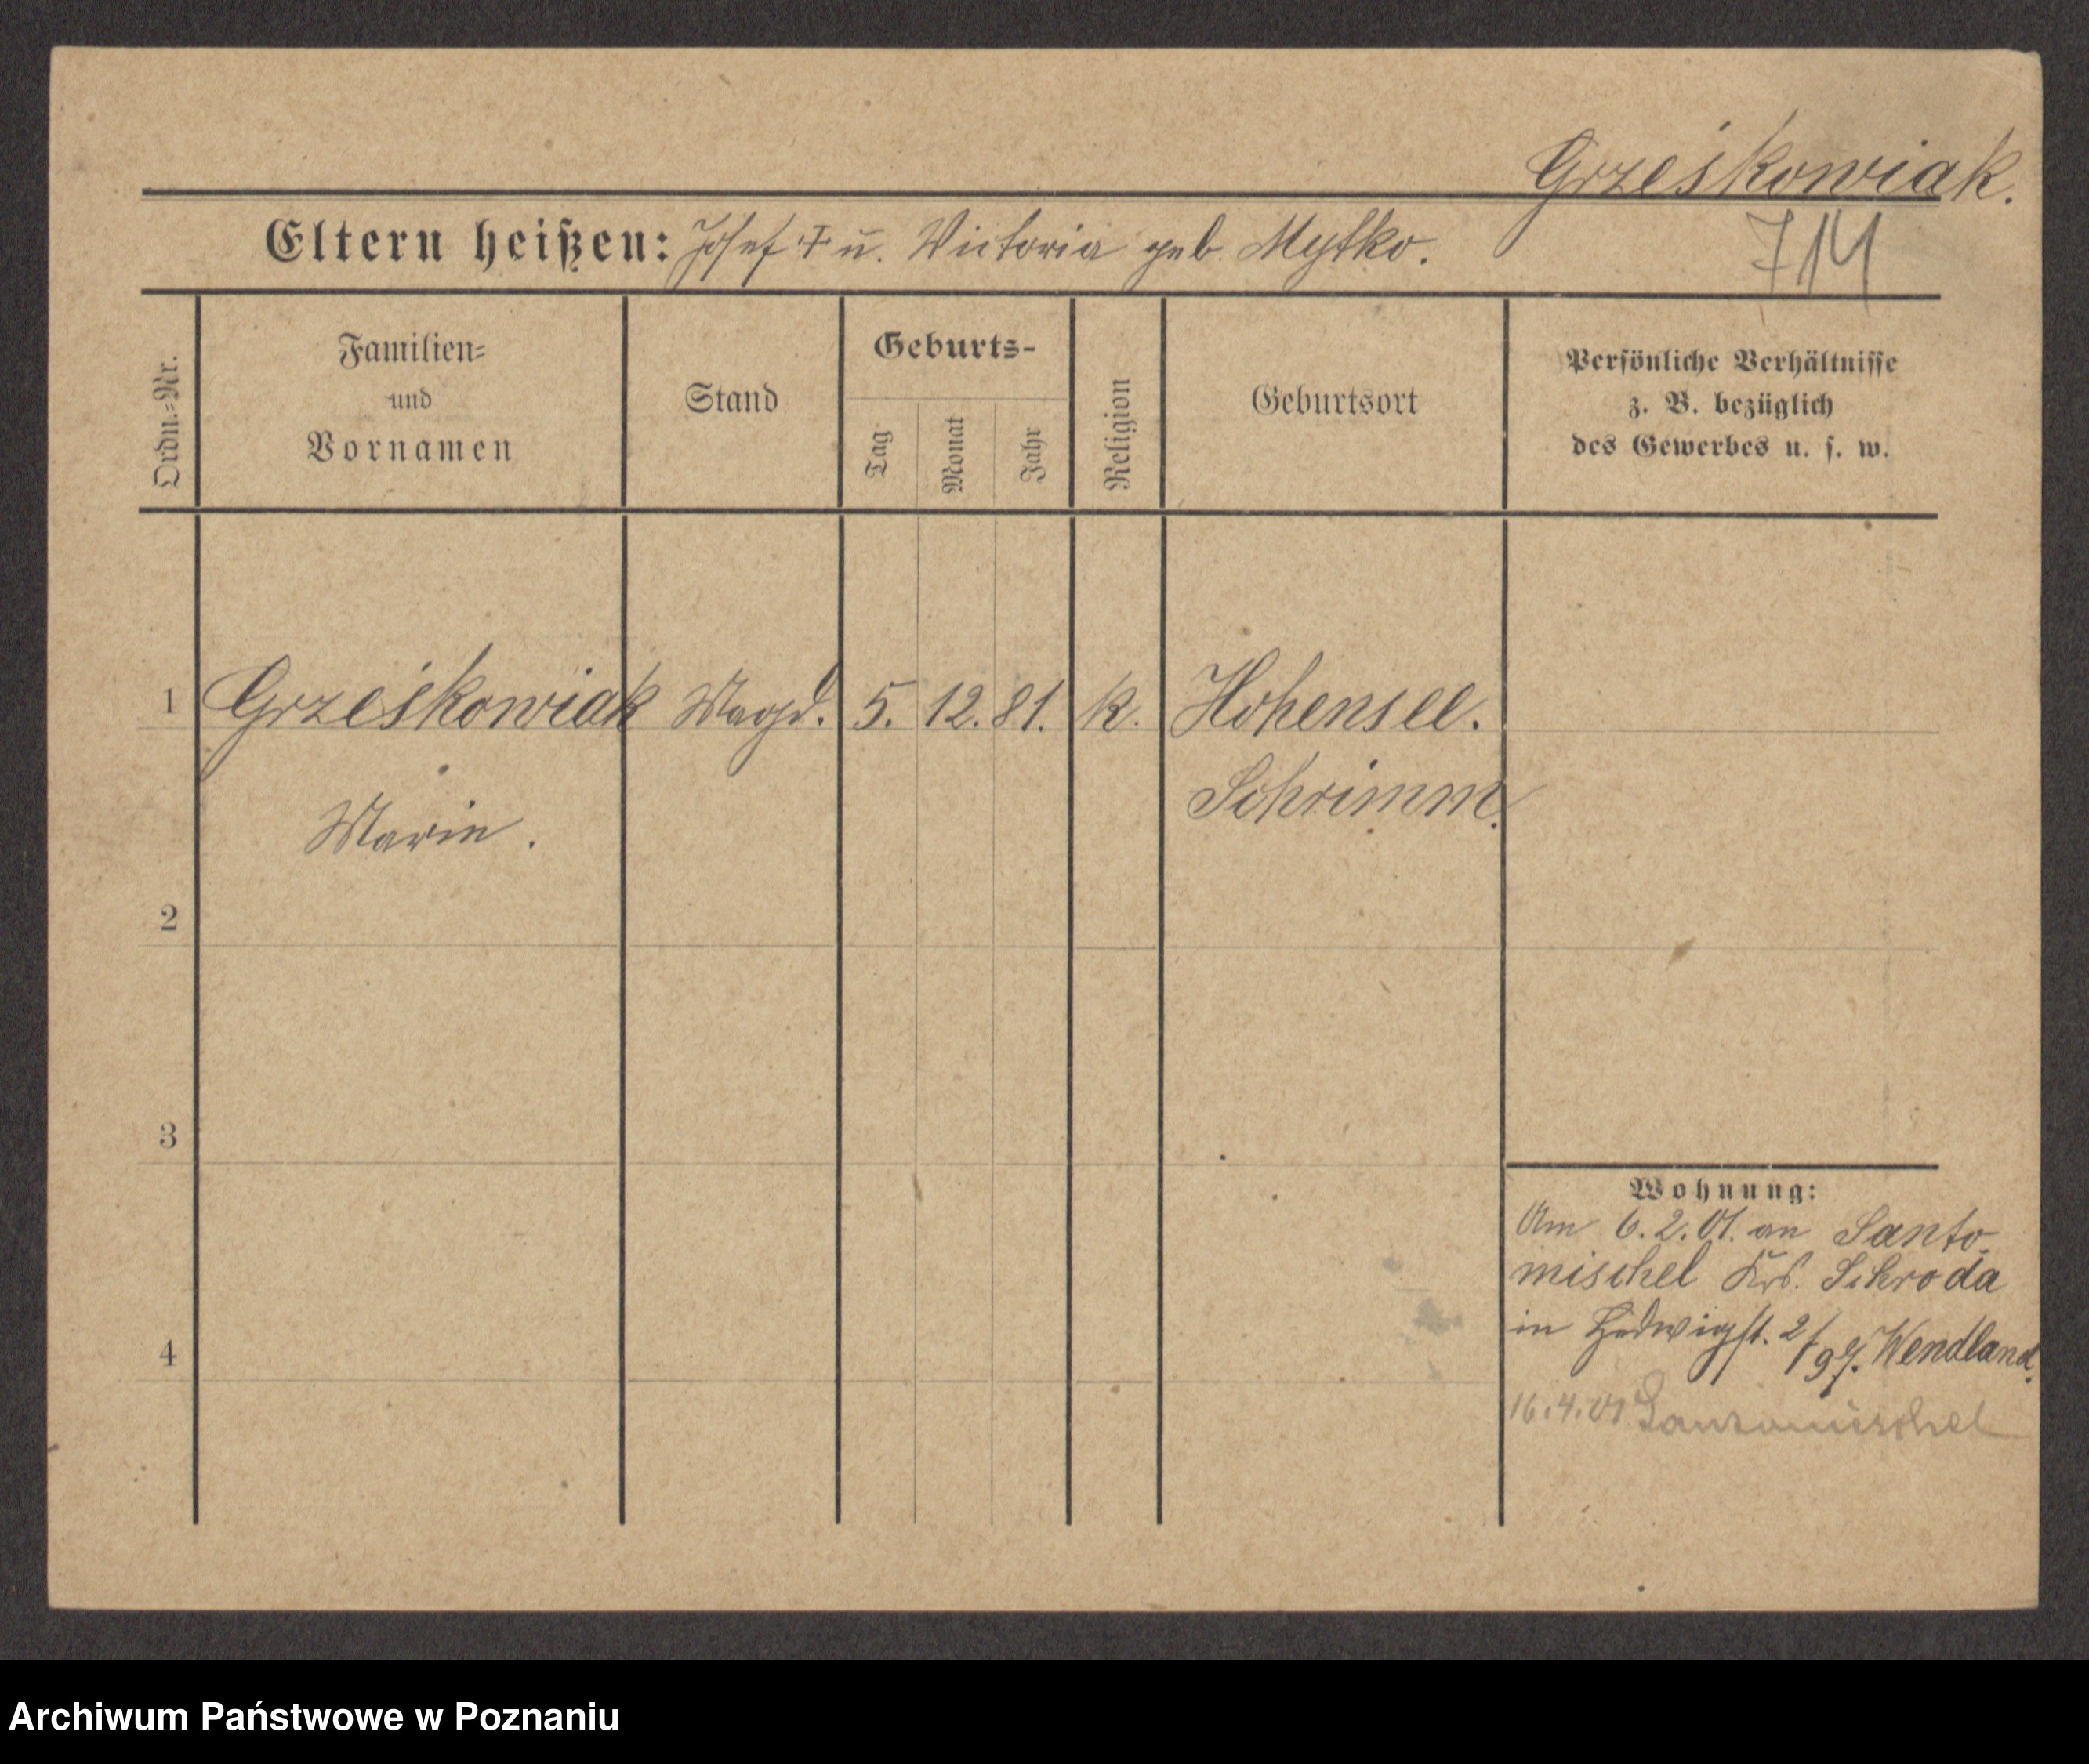 Grześkowiak.
Eltern heißen: Josef † u. Victoria geb. Mytko.
714
Ordn.=Nr.
Familien=
und
Vornamen
Stand
Geburts-
Tag
Monat
Jahr
Religion
Geburtsort
Persönliche Verhältnisse
z. B. bezüglich
des Gewerbes u. s. w.
1 Grześkowiak Magd. 5. 12. 81. k. Hohensee.
Schrimm.
Marie.
2
3
4
Wohnung:
Am 6.2.01. an Santo
mischel Krs. Schroda
in Hedwigst. 2/ Wendland.
16.4.01 Santomischel
Archiwum Państwowe w Poznaniu